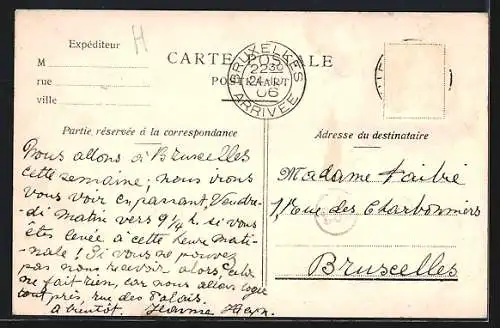 Expéditeur
H
CARTE POSTALE
POSTKAART
M
rue
ville
BRUXELLES
22³⁰
24
06
ARRIVÉE
Partie réservée à la correspondance
Adresse du destinataire
Nous allons à Bruxelles
cette semaine; nous irons
vous voir en passant, Vendre-
di Matin vers 9 ¼ h. si vous
êtes levée à cette heure Mati-
nale! Si vous ne pouvez
pas nous recevoir alors, cela
ne fait rien, car nous allons loger
tout près, rue des Palais.
à bientôt. Jeanne
Madame
1, rue des Charbonniers
Bruxelles